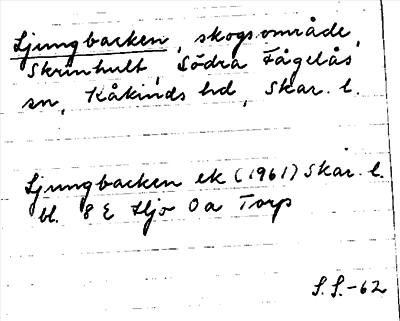 Ljungbacken, skogsområde,
Skrinhult, Södra Fågelås
sn, Kåkinds hd, Skar. l.
Ljungbacken ek (1961) Skar. l.
bl. 8 E Hjo 0a Torp
S.S.-62